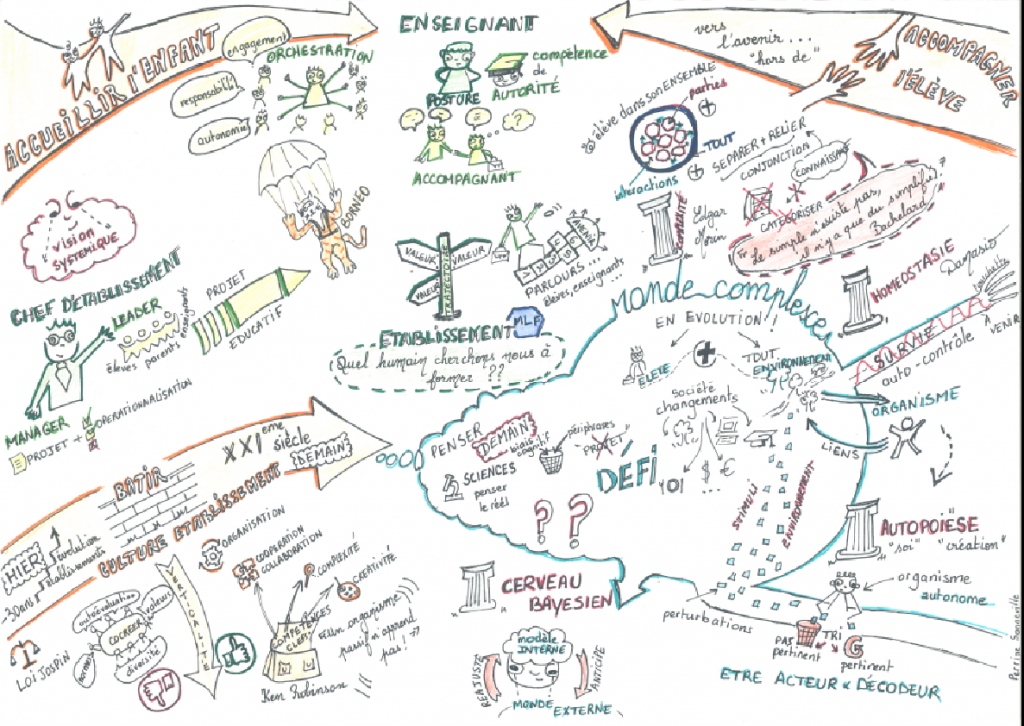 ACCUEILLIR l'ENFANT
engagement
ORCHESTRATION
autonomie
ENSEIGNANT
POSTURE
compétence
de
AUTORITÉ
ACCOMPAGNANT
vers
l'avenir...
"hors de"
ACCOMPAGNER
l'ÉLÈVE
@ élève dans son ENSEMBLE
parties
TOUT
interactions
SEPARER + RELIER
CONJONCTION
CONNAISSANCE
CATÉGORISER
"Le simple n'existe pas,
il n'y a que du simplifié"
Bachelard
COMPLEXITÉ
Edgar
Morin
vision
SYSTEMIQUE
CHEF D'ETABLISSEMENT
LEADER
élèves parents enseignants
PROJET
EDUCATIF
MANAGER
PROJET + OPERATIONNALISATION
VALEUR
VALEUR
VALEUR
PARCOURS...
élèves, enseignants...
ETABLISSEMENT
MLF
Quel humain cherchons nous à
former ??
Monde complexe
EN EVOLUTION !
ELEVE
+
TOUT
ENVIRONNEMENT
Société
changements
$ €
101 ...
HOMEOSTASIE
Damasio
SURVIE
auto-contrôle
ORGANISME
LIENS
STIMULI
ENVIRONNEMENT
PENSER DEMAIN
biais
cognitif
périphrases
PROJET
SCIENCES
penser
le réel
DÉFI
? ?
AUTOPOIËSE
"soi" "création"
organisme
autonome...
perturbations
PAS
pertinent
TRI
pertinent
ETRE ACTEUR & DÉCODEUR
Perrine Sonneville
CERVEAU
BAYESIEN
modèle
INTERNE
REAJUSTE
ANTICIPE
MONDE EXTERNE
BATIR
XXIeme
siècle
DEMAIN
CULTURE ETABLISSEMENT
HIER
évolution
établissements
30 ans
LOI JOSPIN
COCREER
valeurs
diversité
ORGANISATION
COOPERATION
COLLABORATION
COMPLEXITÉ
CREATIVITÉ
COMPETENCES
Ken Robinson
"Un organisme
passif n'apprend
pas !"